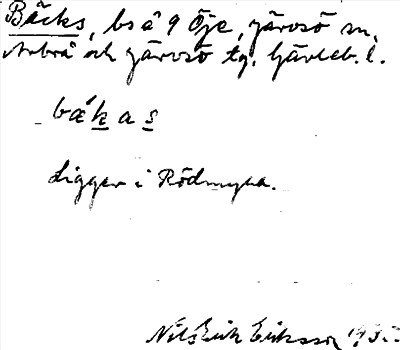 Bäcks, bs å 9 Öje, Järvsö sn,
Arbrå och Järvsö tg. Gävleb. l.
bækas
Ligger i Rödmyra.
Nils Erik Eriksson